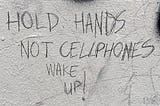 HOLD HANDS
NOT CELLPHONES
WAKE
UP!